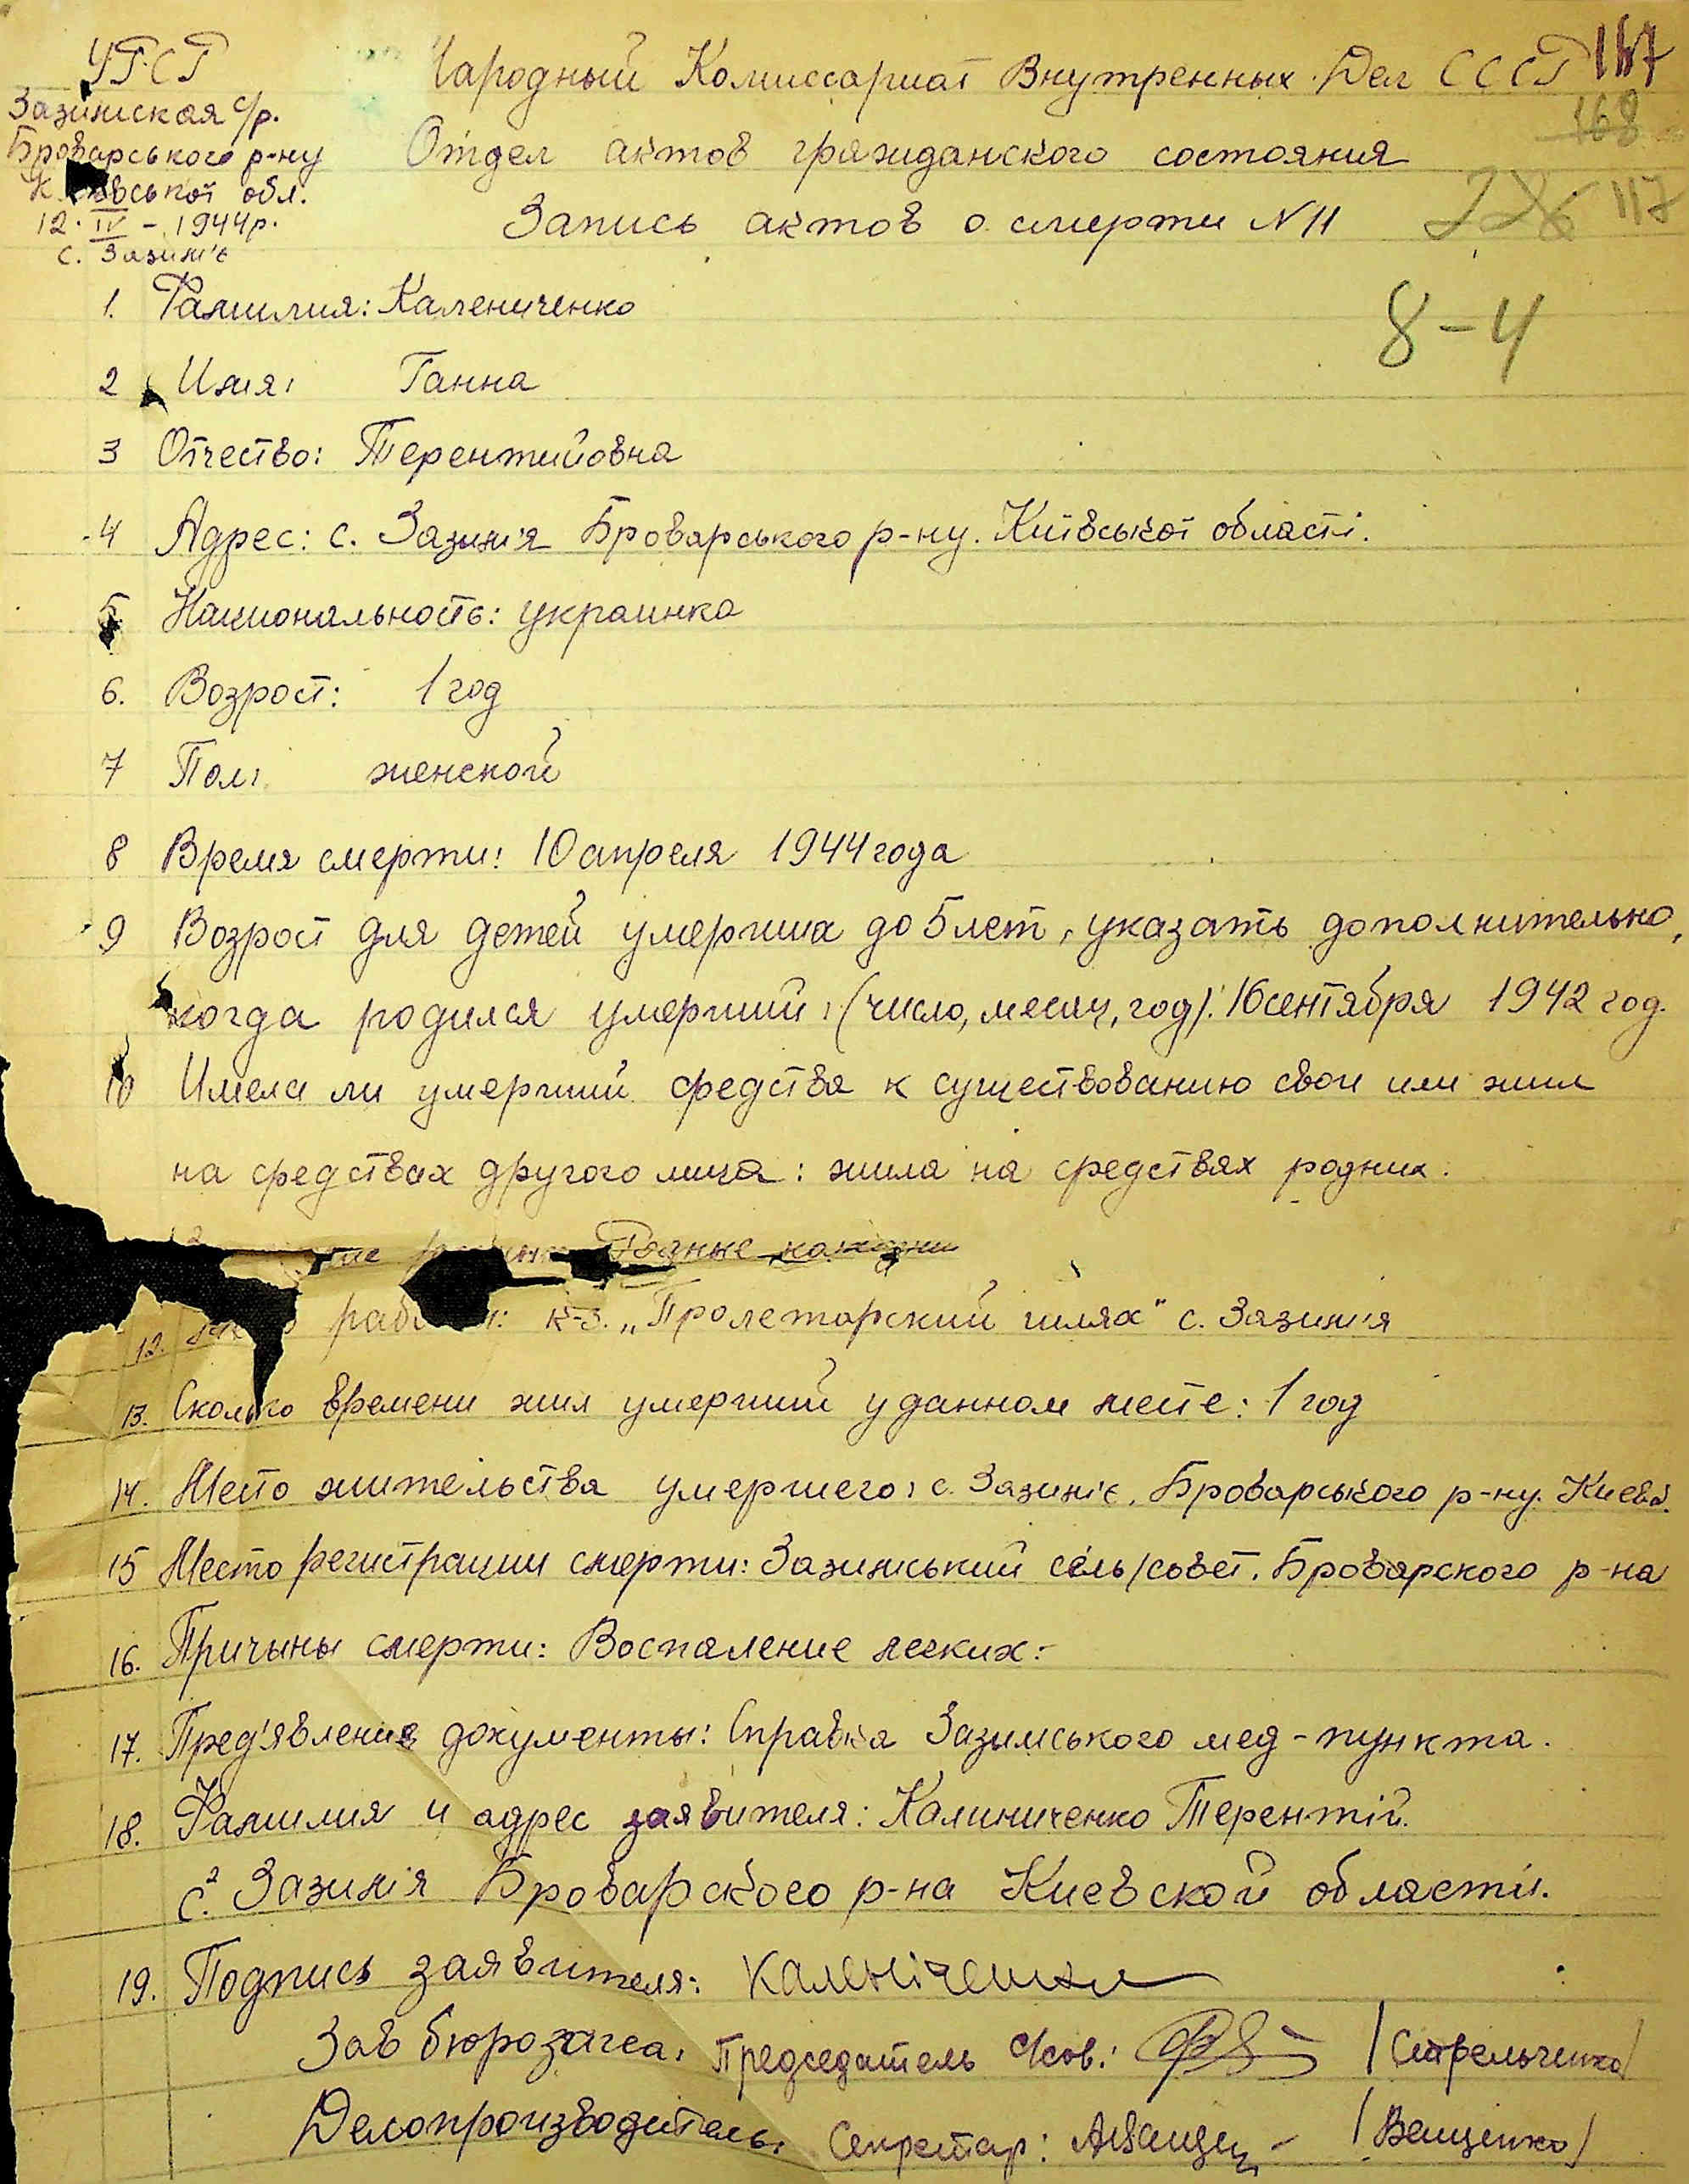 УРСР
Зазимская с/р.
Броварського р-ну
обл.
12. IV - 1944 р.
с. Зазим'є
Народный Комиссариат Внутренных Дел СССР 167
168
Отдел актов гражданского состояния
Запись актов о смерти N 11
117
8-4
1. Фамилия: Калениченко
2 Имя: Ганна
3 Отчество: Терентийовна
4 Адрес: с. Зазим'я Броварського р-ну. Київської області.
5. Национальность: украинка
6. Возрост: 1 год
7 Пол: женской
8 Время смерти: 10 апреля 1944 года
9 Возрост для детей умерших до 5 лет, указать дополнительно,
когда родился умерший: (число, месяц, год): 16 сентября 1942 год.
10 Имела ли умерший средства к существованию свои или жил
на средствах другого лица: жила на средствях родних.
Родные
12. к-з. „Пролетарский шлях" с. Зазим'я
13. Сколько времени жил умерший у данном месте: 1 год
14. Место жительства умершего: с. Зазим'є, Броварського р-ну. Києвс.
15 Место регистрации смерти: Зазимський сель/совет. Броварского р-на
16. Причыны смерти: Воспаление легких:-
17. Пред'явление документы: Справка Зазимського мед-пункта.
18. Фамилия и адрес заявителя: Калиниченко Терентій.
с. Зазим'я Броварского р-на Киевской области.
19. Подпись заявителя: Каленіченко
Зав бюрозагса: Председатель с/сов.: /Стрельченко/
Делопроизводитель: Секретар: /Ващенко/